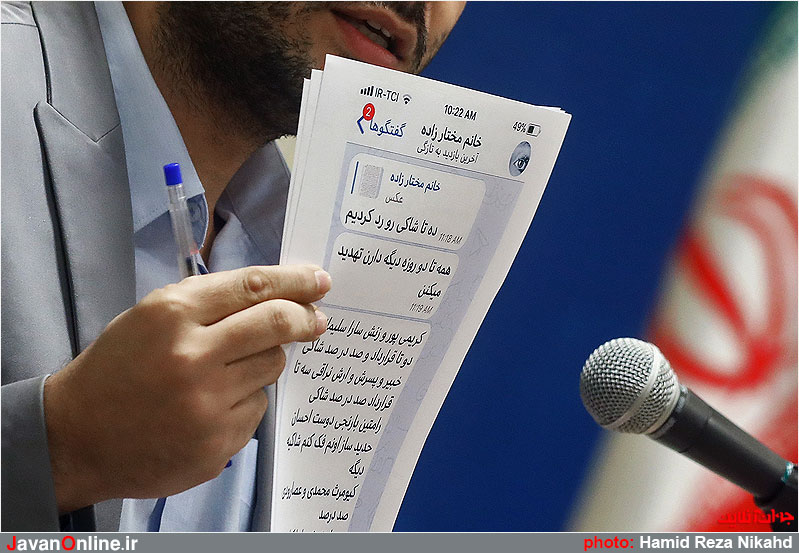 IR-TCI
10:22 AM
49%
2
گفتگوها
خانم مختار زاده
آخرین بازدید به تازگی
خانم مختار زاده
عکس
ده تا شاکی رو رد کردیم
11:18 AM
همه تا دو روزه دیگه دارن تهدید
میکنن
11:19 AM
کریمی پور و زنش سارا سلیما
دو تا قرارداد و صد در صد شاکی
خبیر و پسرش و ارش نراقی سه تا
قرارداد صد در صد شاکی
رامتین بارنجی دوست احسان
حدید ساز اونم فک کنم شاکیه
دیگه
کیومرث محمدی و عصاروندی
صد درصد
JavanOnline.ir
photo: Hamid Reza Nikahd